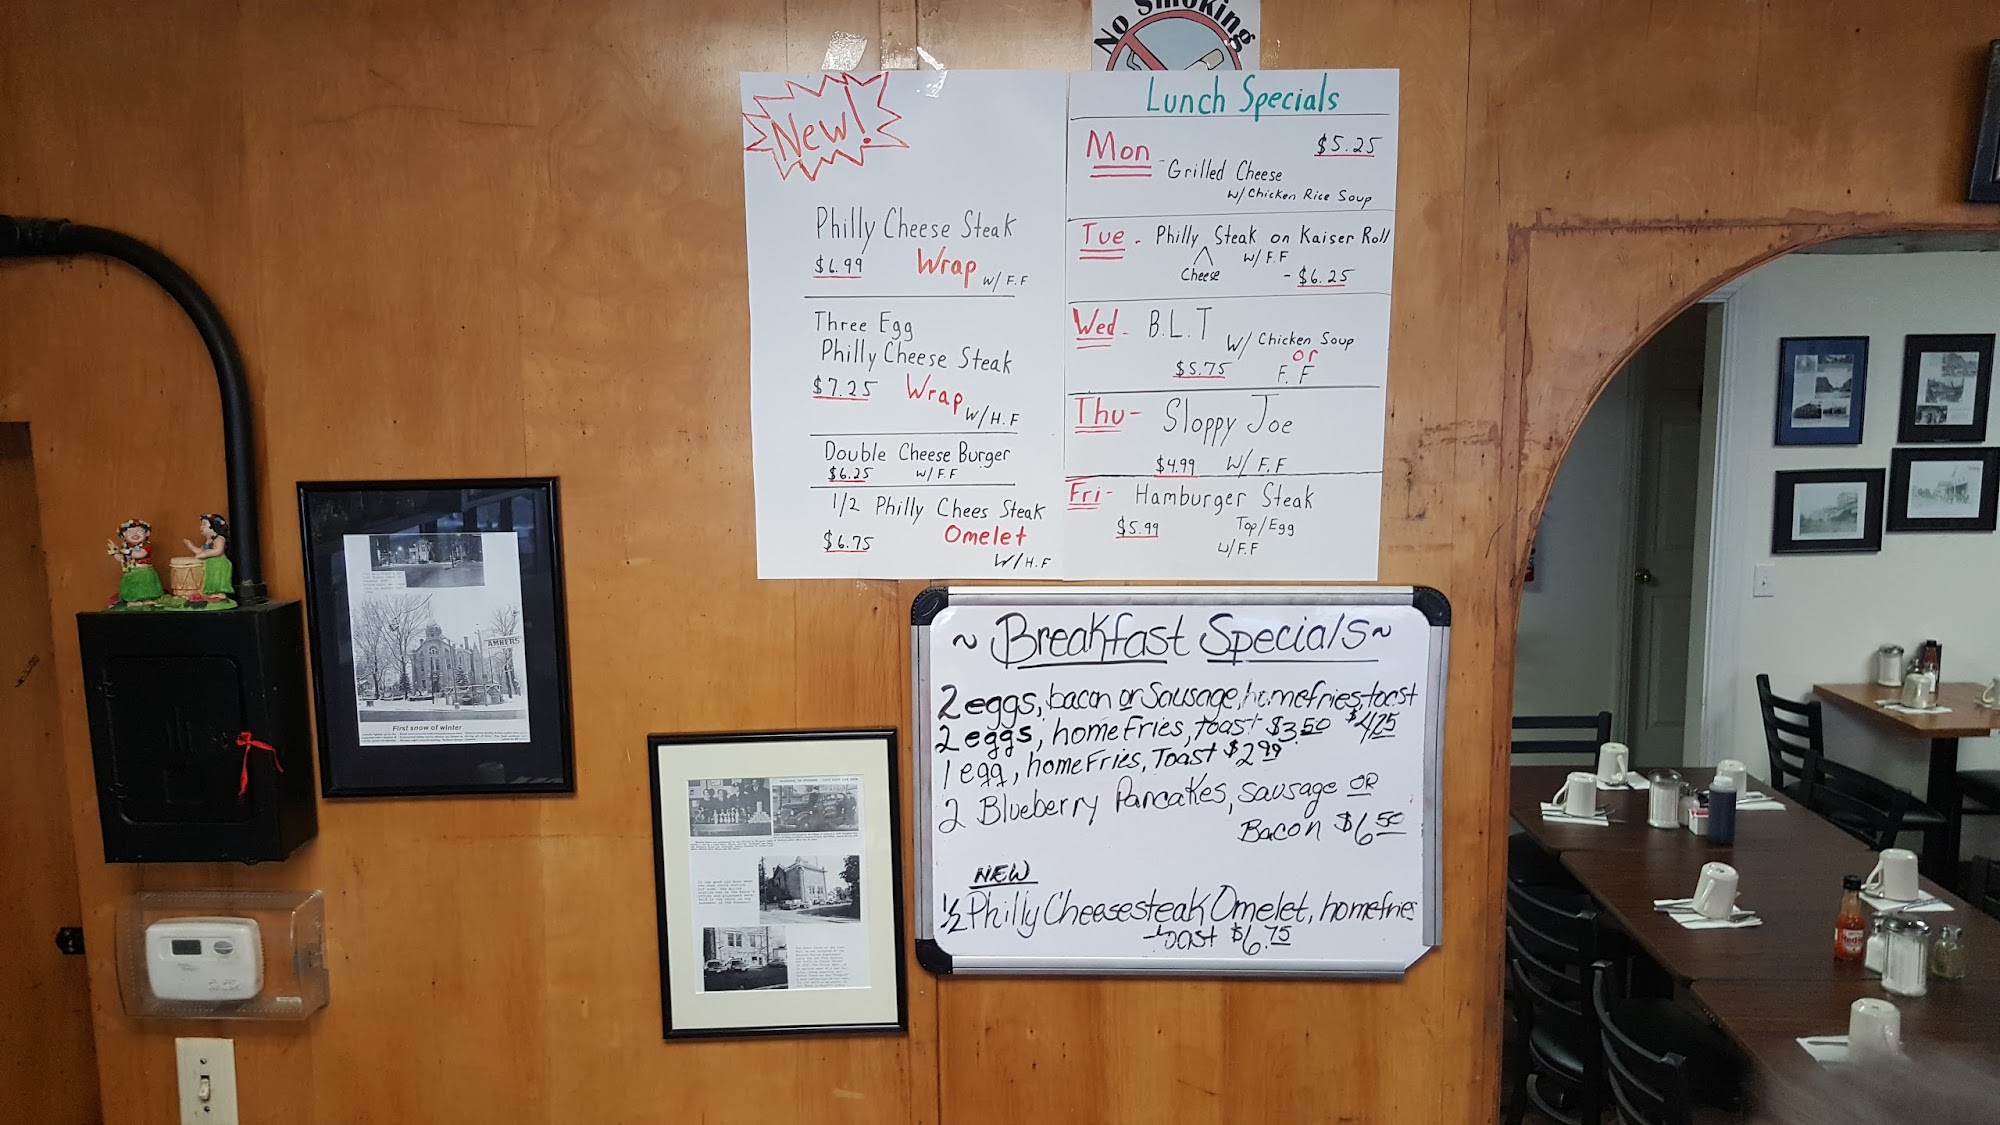 No Smoking
New!
Philly Cheese Steak
$6.99 Wrap w/ F.F
Three Egg
Philly Cheese Steak
$7.25 Wrap w/ H.F
Double Cheese Burger
$6.25 w/ F.F
1/2 Philly Chees Steak
$6.75 Omelet
w/ H.F
Lunch Specials
Mon - Grilled Cheese $5.25
w/ Chicken Rice Soup
Tue - Philly Steak on Kaiser Roll
Cheese w/ F.F
- $6.25
Wed - B.L.T w/ Chicken Soup
or
$5.75 F.F
Thu - Sloppy Joe
$4.99 w/ F.F
Fri - Hamburger Steak
$5.99 Top/Egg
w/ F.F
~ Breakfast Specials ~
2 eggs, bacon or Sausage, homefries, toast
$4.75
2 eggs, homeFries, Toast $3.50
1 egg, homeFries, Toast $2.99
2 Blueberry Pancakes, sausage OR
Bacon $6.50
NEW
1/2 Philly Cheesesteak Omelet, homefries
toast $6.75
AMHERS
First snow of winter